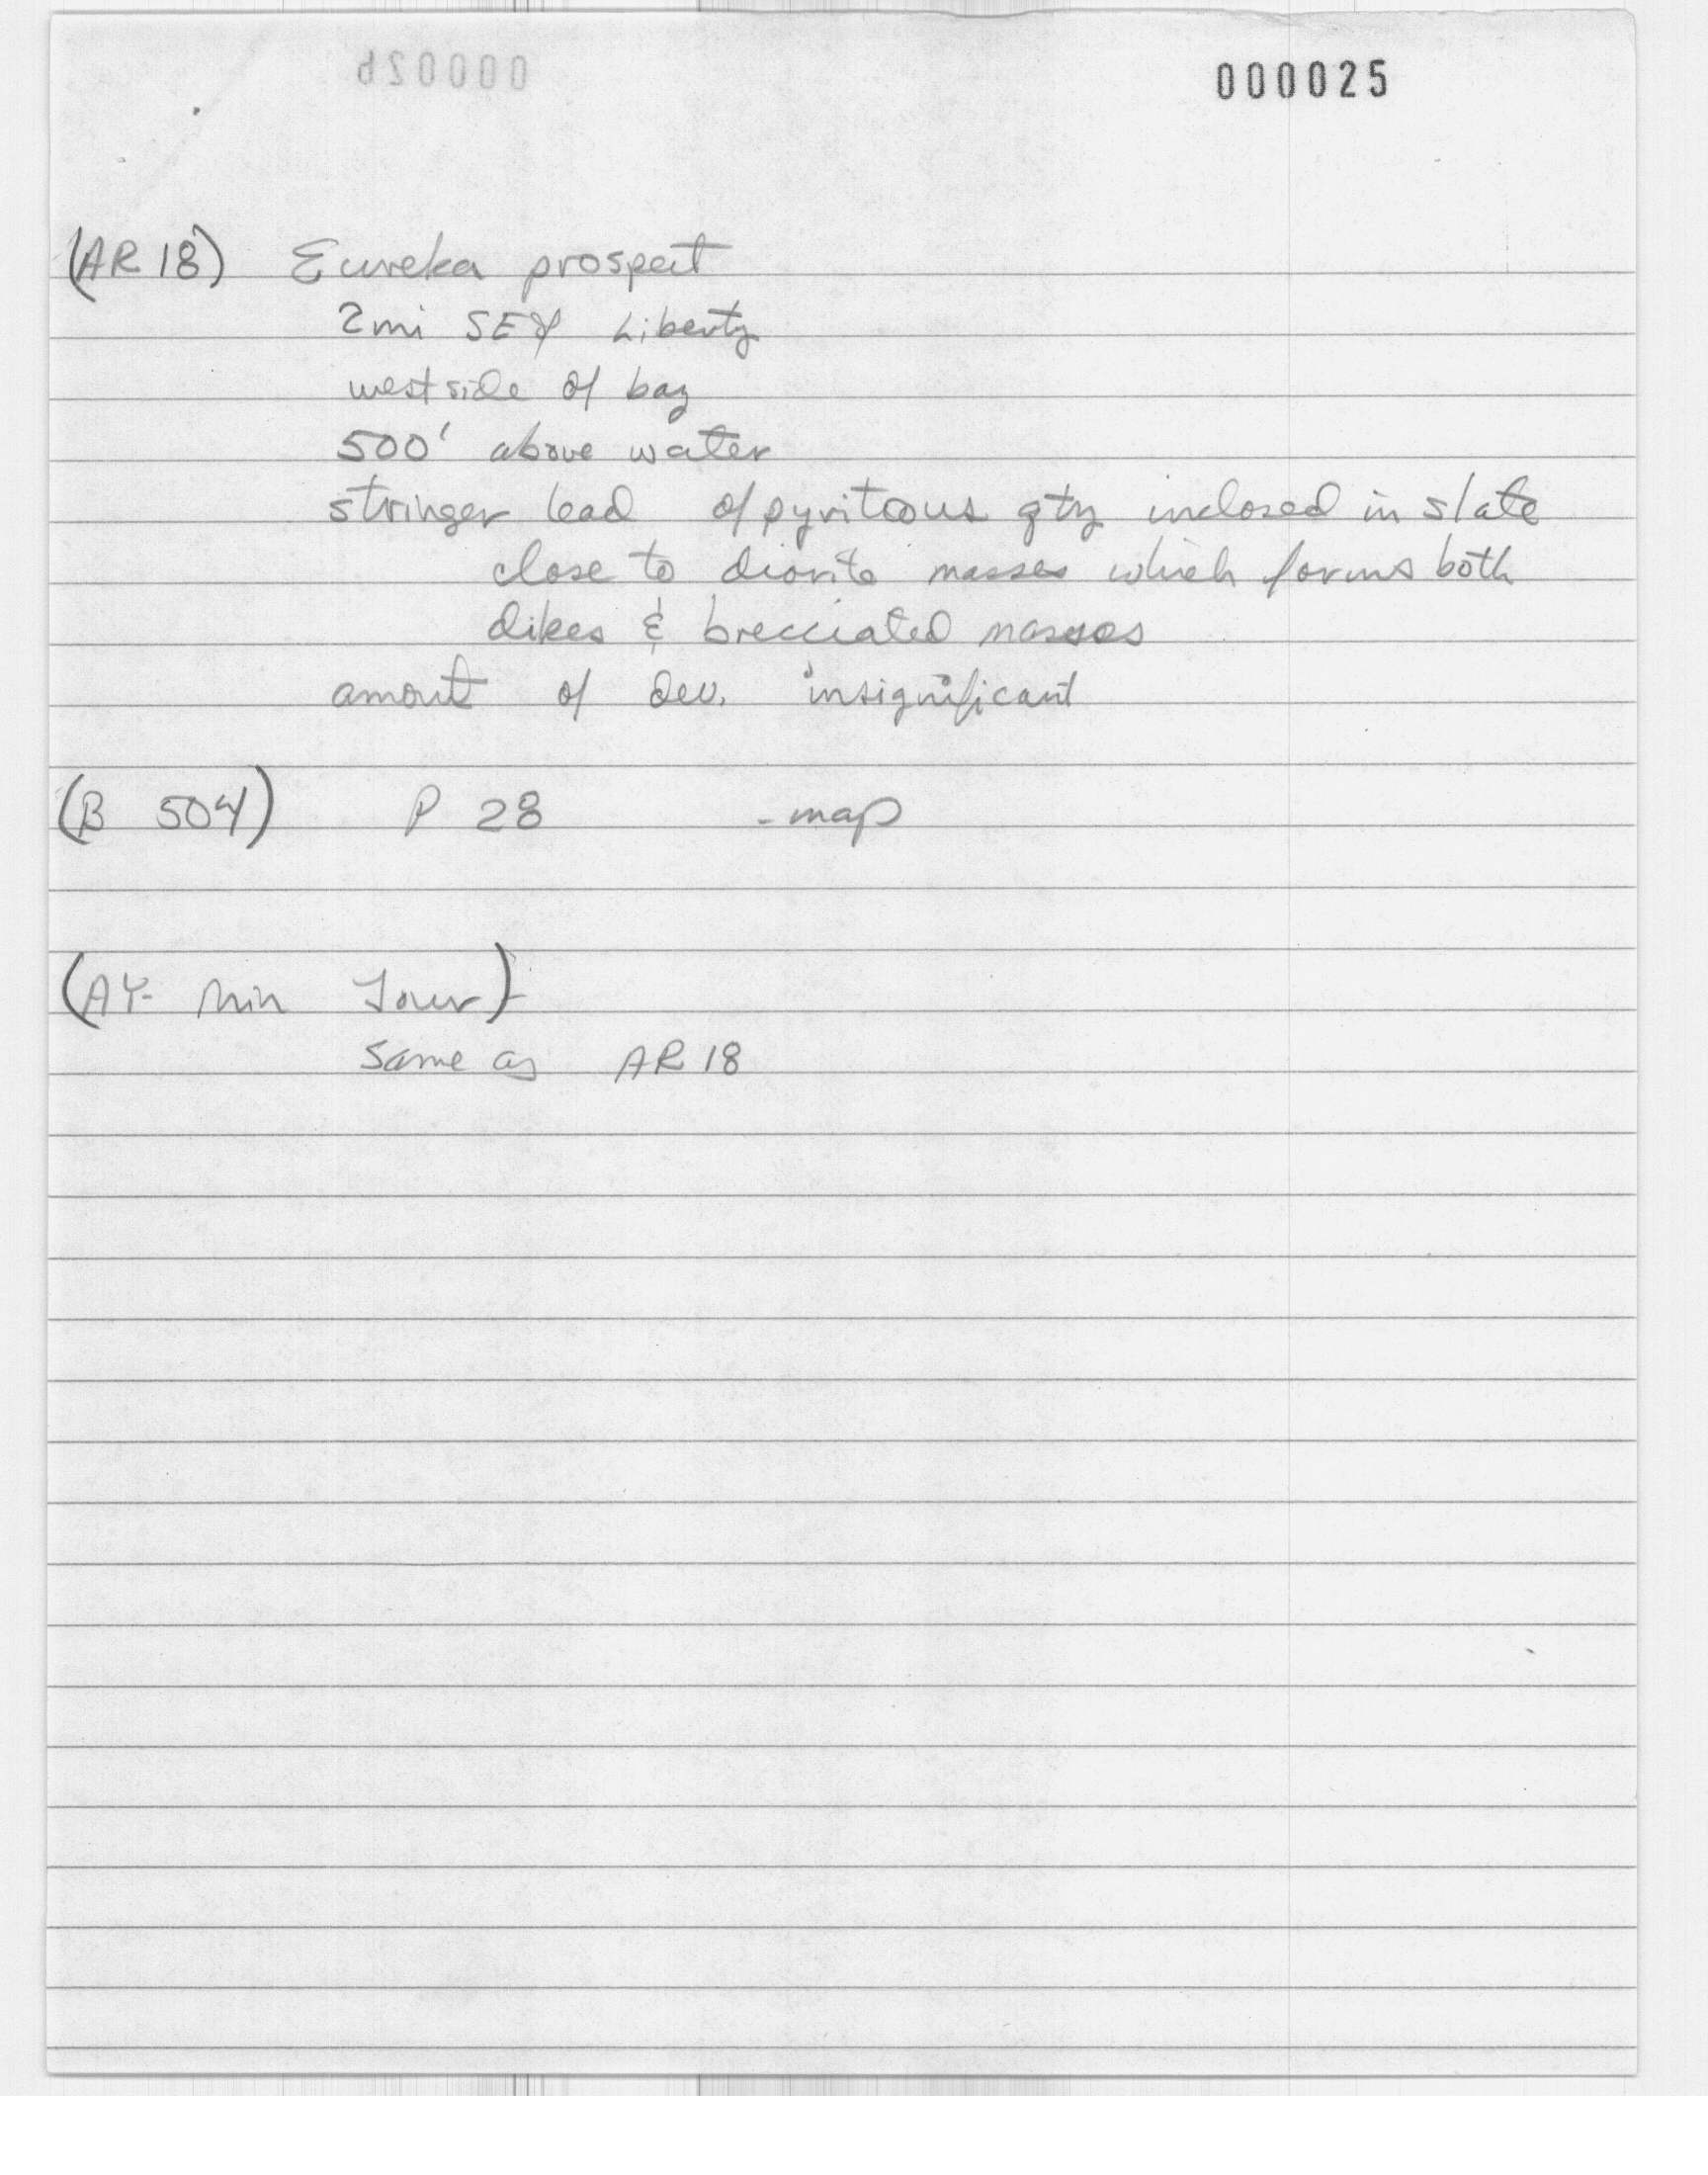 000025
(AR 18) Eureka prospect
2mi SE of Liberty
west side of bay
500' above water
stringer lead of pyritous qtz inclosed in slate
close to diorite masses which forms both
dikes & brecciated masses
amount of dev. insignificant
(B 504) P 28 - map
(AY- Min Jour)-
same as AR 18